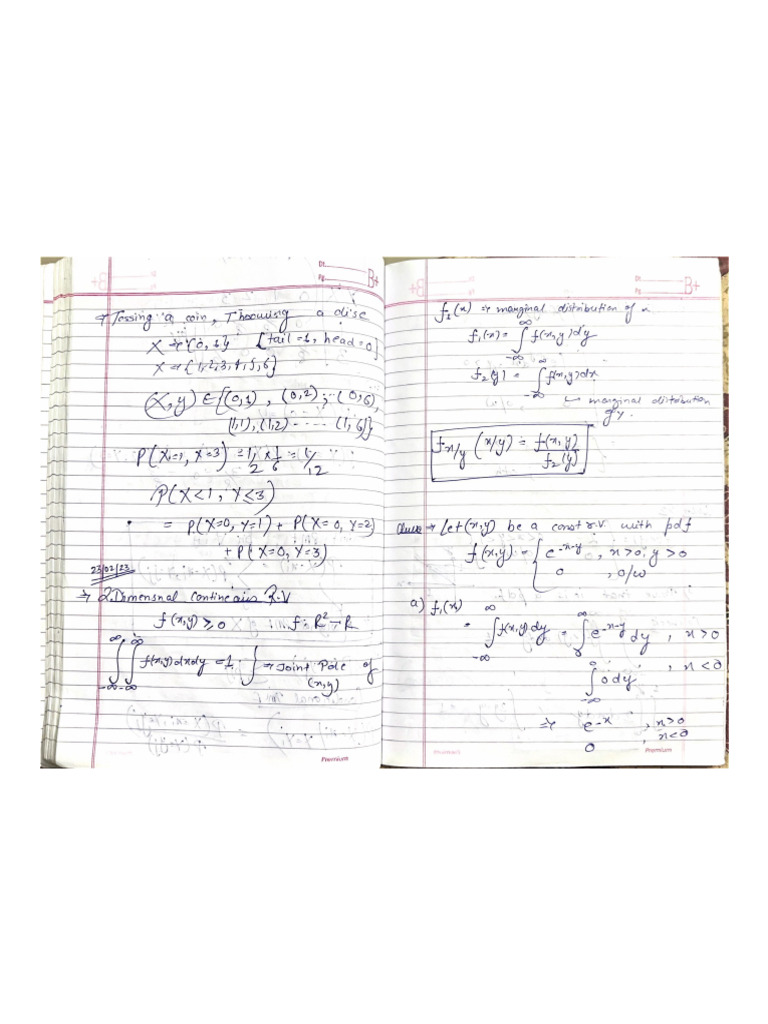 Dt.
Pg.
B+
→ Tossing a coin, Throwing a dise
X ⇒ {0, 1} [tail=1, head=0]
X ⇒ {1,2,3,4,5,6}
(X,y) ∈ {(0,1), (0,2), ... (0,6),
(1,1), (1,2) ---- (1,6)}
P(X=1, X=3) = 1/2 × 1/6 = 1/12
P(X<1, Y≤3)
= P(X=0, Y=1) + P(X=0, Y=2)
+ P(X=0, Y=3)
23/02/23
→ 2.Dimensnal continears R.V
f(x,y) ≥ 0 f: R² → R
∫_{-∞}^{∞} ∫_{-∞}^{∞} f(x,y)dxdy = 1. } ⇒ Joint Pdf of
(x,y)
Premium
Dt.
Pg.
B+
f₁(x) → marginal distribution of x
f₁(x) = ∫_{-∞}^{∞} f(x,y)dy
f₂(y) = ∫_{-∞}^{∞} f(x,y)dx
↳ marginal distribution
of y.
f_{x/y} (x/y) = f(x,y)/f₂(y)
→ Let (x,y) be a const r.v with pdf
f(x,y) = { e^{-x-y}, x>0, y>0
0 , 0/w
a) f₁(x)
= ∫_{-∞}^{∞} f(x,y)dy = ∫_{0}^{∞} e^{-x-y} dy , x>0
∫_{-∞}^{∞} 0dy , x<0
⇒ e^{-x} , x>0
0 , x<0
Premium